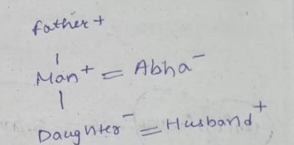 Father +
Man + = Abha -
Daughter - = Husband +